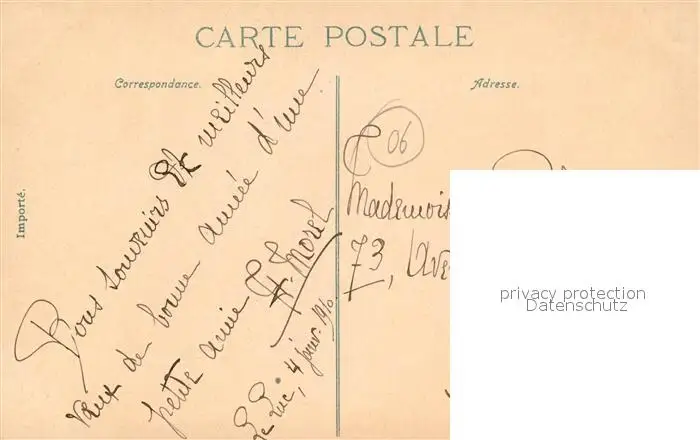 CARTE POSTALE
Correspondance.
Adresse.
Importé.
Bons souvenirs et meilleurs
vœux de bonne année d'une
petite amie
Morel
Le Luc, 4 janv. 1910
06
Mademois
73, Ave
privacy protection
Datenschutz